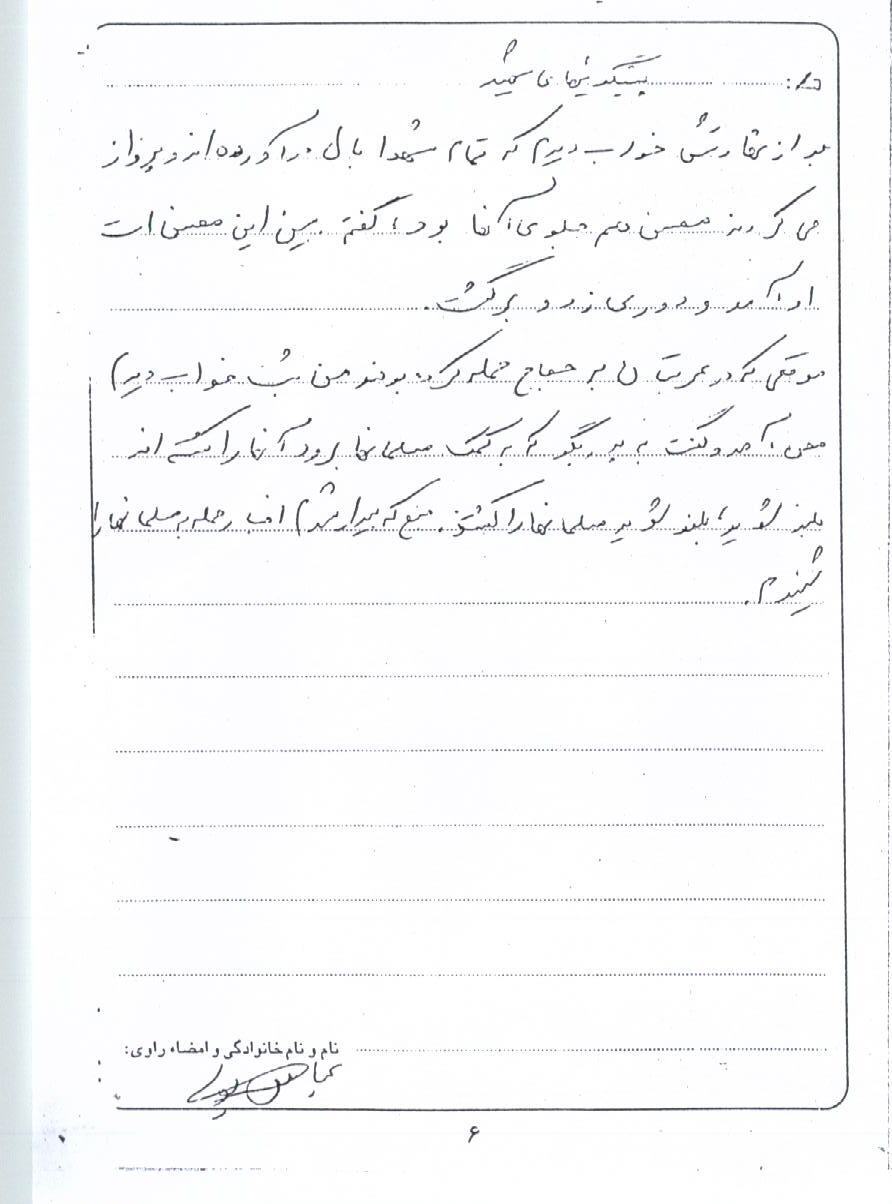 پیشگویی‌های شهید
بعد از شهادتش خواب دیدم که تمام شهدا بال درآورده‌اند و پرواز
می‌کردند محسن هم جلوی آنها بود، گفتم ببین این محسن است
او آمد و دوری زد و برگشت.
موقعی که در عربستان به حجاج حمله کرده بودند من شب خواب دیدم
محسن آمد و گفت به پدر بگو که به کمک مسلمانها برود آنها را کشته‌اند
بلند شوید، بلند شوید مسلمانها را کشتند. صبح که بیدار شدم اخبار حمله به مسلمانها را
شنیدم.
نام و نام خانوادگی و امضاء راوی:
۶